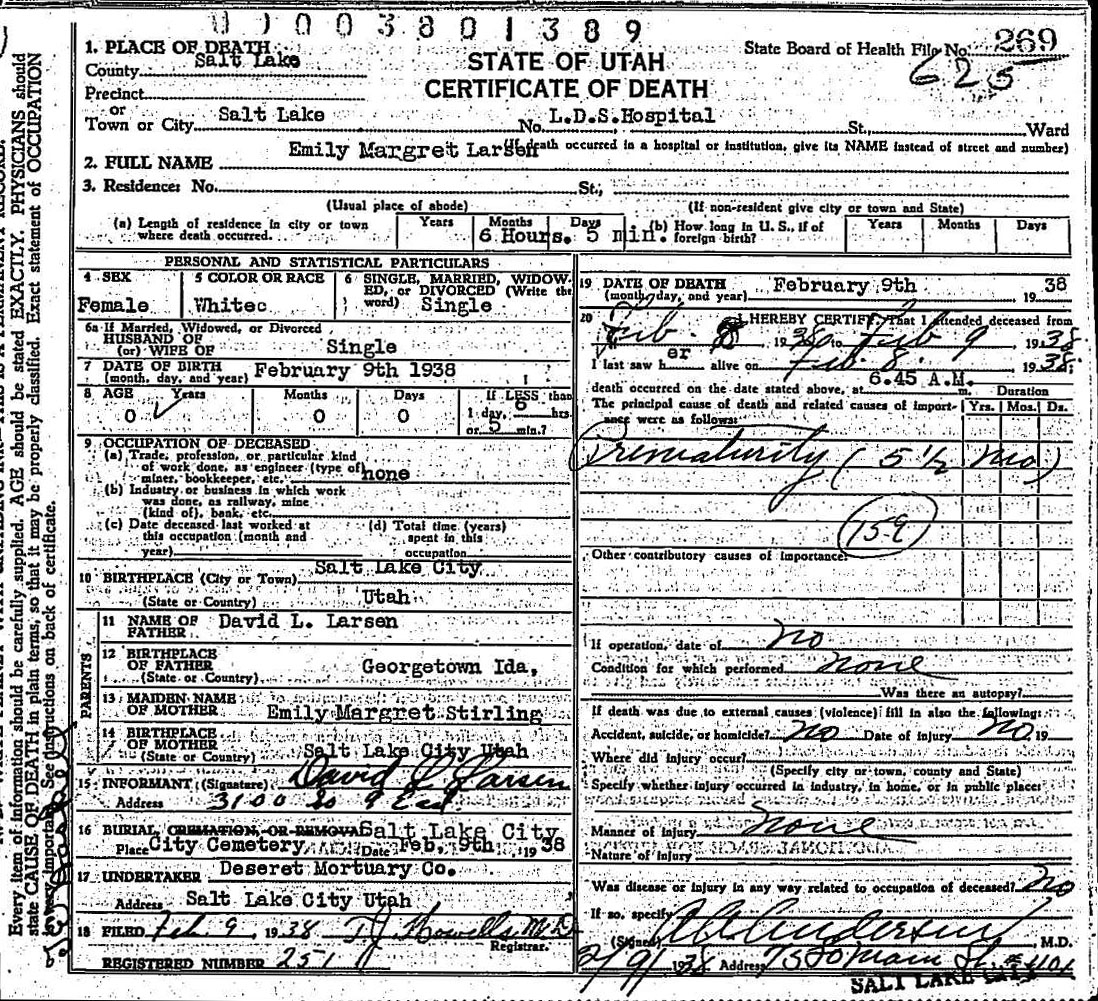 0003801389
1. PLACE OF DEATH
County Salt Lake
Precinct
or
Town or City Salt Lake
STATE OF UTAH
CERTIFICATE OF DEATH
State Board of Health File No. 269
625
No. L.D.S.Hospital St., Ward
(If death occurred in a hospital or institution, give its NAME instead of street and number)
2. FULL NAME Emily Margret Larsen
3. Residence: No. St.,
(Usual place of abode) (If non-resident give city or town and State)
(a) Length of residence in city or town where death occurred. Years Months Days
6 Hours. 5 min.
(b) How long in U. S., if of foreign birth? Years Months Days
PERSONAL AND STATISTICAL PARTICULARS
4 SEX 5 COLOR OR RACE 6 SINGLE, MARRIED, WIDOWED, OR DIVORCED (Write the word)
Female White Single
6a If Married, Widowed, or Divorced
HUSBAND OF
(or) WIFE OF Single
7 DATE OF BIRTH
(month, day, and year) February 9th 1938
8 AGE Years Months Days If LESS than
0 0 0 1 day, 6 hrs.
or 5 min.?
9 OCCUPATION OF DECEASED
(a) Trade, profession, or particular kind
of work done, as engineer (type of)
miner, bookkeeper, etc. none
(b) Industry or business in which work
was done, as railway, mine
(kind of), bank, etc.
(c) Date deceased last worked at
this occupation (month and
year)
(d) Total time (years)
spent in this
occupation
10 BIRTHPLACE (City or Town) Salt Lake City
(State or Country) Utah
PARENTS
11 NAME OF FATHER David L. Larsen
12 BIRTHPLACE
OF FATHER
(State or Country) Georgetown Ida,
13 MAIDEN NAME
OF MOTHER Emily Margret Stirling
14 BIRTHPLACE
OF MOTHER
(State or Country) Salt Lake City Utah
15 INFORMANT (Signature) David L Larsen
Address 3100 So 9 East
16 BURIAL CREMATION, OR REMOVAL Salt Lake City
Place City Cemetery Date Feb. 9th, 19 38
17 UNDERTAKER Deseret Mortuary Co.
Address Salt Lake City Utah
18 FILED Feb 9, 1938 T J Howells M.D.
Registrar.
REGISTERED NUMBER 251
19 DATE OF DEATH
(month, day, and year) February 9th 19 38
20 I HEREBY CERTIFY, That I attended deceased from
Feb. 8, 1938 to Feb 9, 1938
I last saw her alive on Feb 8. 1938;
death occurred on the date stated above, at 6.45 A.M. m.
Duration
The principal cause of death and related causes of importance were as follows: Yrs. Mos. Ds.
Prematurity (5 1/2 mo)
159
Other contributory causes of importance:
If operation, date of no
Condition for which performed none
Was there an autopsy?
If death was due to external causes (violence) fill in also the following:
Accident, suicide, or homicide? No Date of injury No 19
Where did injury occur?
(Specify city or town, county and State)
Specify whether injury occurred in industry, in home, or in public place:
Manner of injury none
Nature of injury
Was disease or injury in any way related to occupation of deceased? No
If so, specify
(Signed) Anderson, M.D.
2/9/1938 Address
SALT LAKE CITY
Every item of information should be carefully supplied. AGE should be stated EXACTLY. PHYSICIANS should
state CAUSE OF DEATH in plain terms, so that it may be properly classified. Exact statement of OCCUPATION
See instructions on back of certificate.